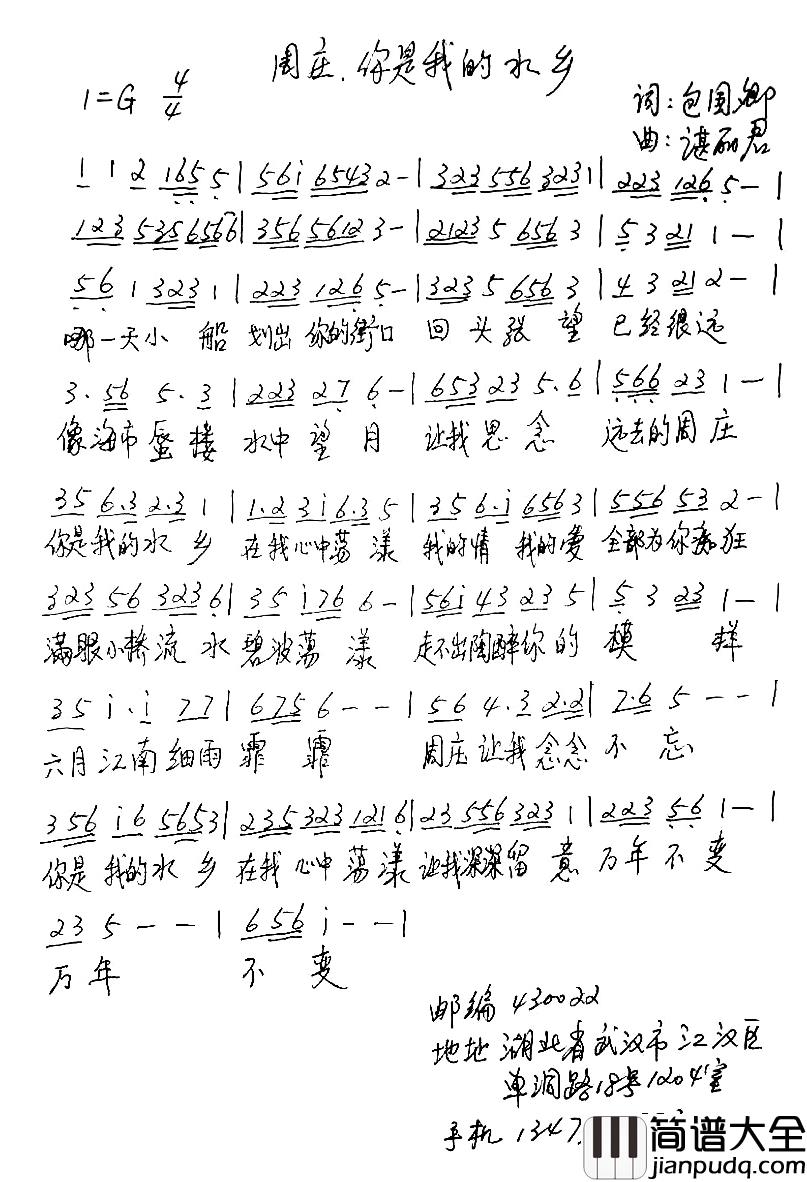 周庄.你是我的水乡
1=G 4/4
词:包国卿
曲:谌丽君
1 1 2 165 5 | 56i 6543 2 - | 323 556 323 1 | 223 126 5 - - |
123 535 6566 | 356 5612 3 - | 2123 5 656 3 | 5 3 21 1 - |
56 1 323 1 | 223 126 5 - | 323 5 656 3 | 4 3 21 2 - |
哪一天小船 划出你的街口 回头张望 已经很远
3. 56 5. 3 | 223 27 6 - | 653 23 5. 6 | 566 23 1 - |
像海市蜃楼 水中望月 让我思念 远去的周庄
35 6.3 2.3 1 | 1.2 3i 6.3 5 | 35 6.i 656 3 | 556 53 2 - |
你是我的水乡 在我心中荡漾 我的情 我的爱 全部为你痴狂
323 56 323 6 | 35 i76 6 - | 56i 43 23 5 | 5 3 23 1 - |
满眼小桥流水 碧波荡漾 走不出陶醉你的模样
35 i. i 77 | 675 6 - - | 56 4.3 2.2 | 7.6 5 - - |
六月江南细雨霏霏 周庄让我念念不忘
356 i6 5653 | 235 323 121 6 | 23 556 323 1 | 223 56 1 - |
你是我的水乡 在我心中荡漾 让我深深留意 万年不变
23 5 - - | 656 i - - |
万年 不变
邮编 430022
地址 湖北省武汉市江汉区
单洞路18号1204室
手机 1347
简谱大全
jianpudq.com